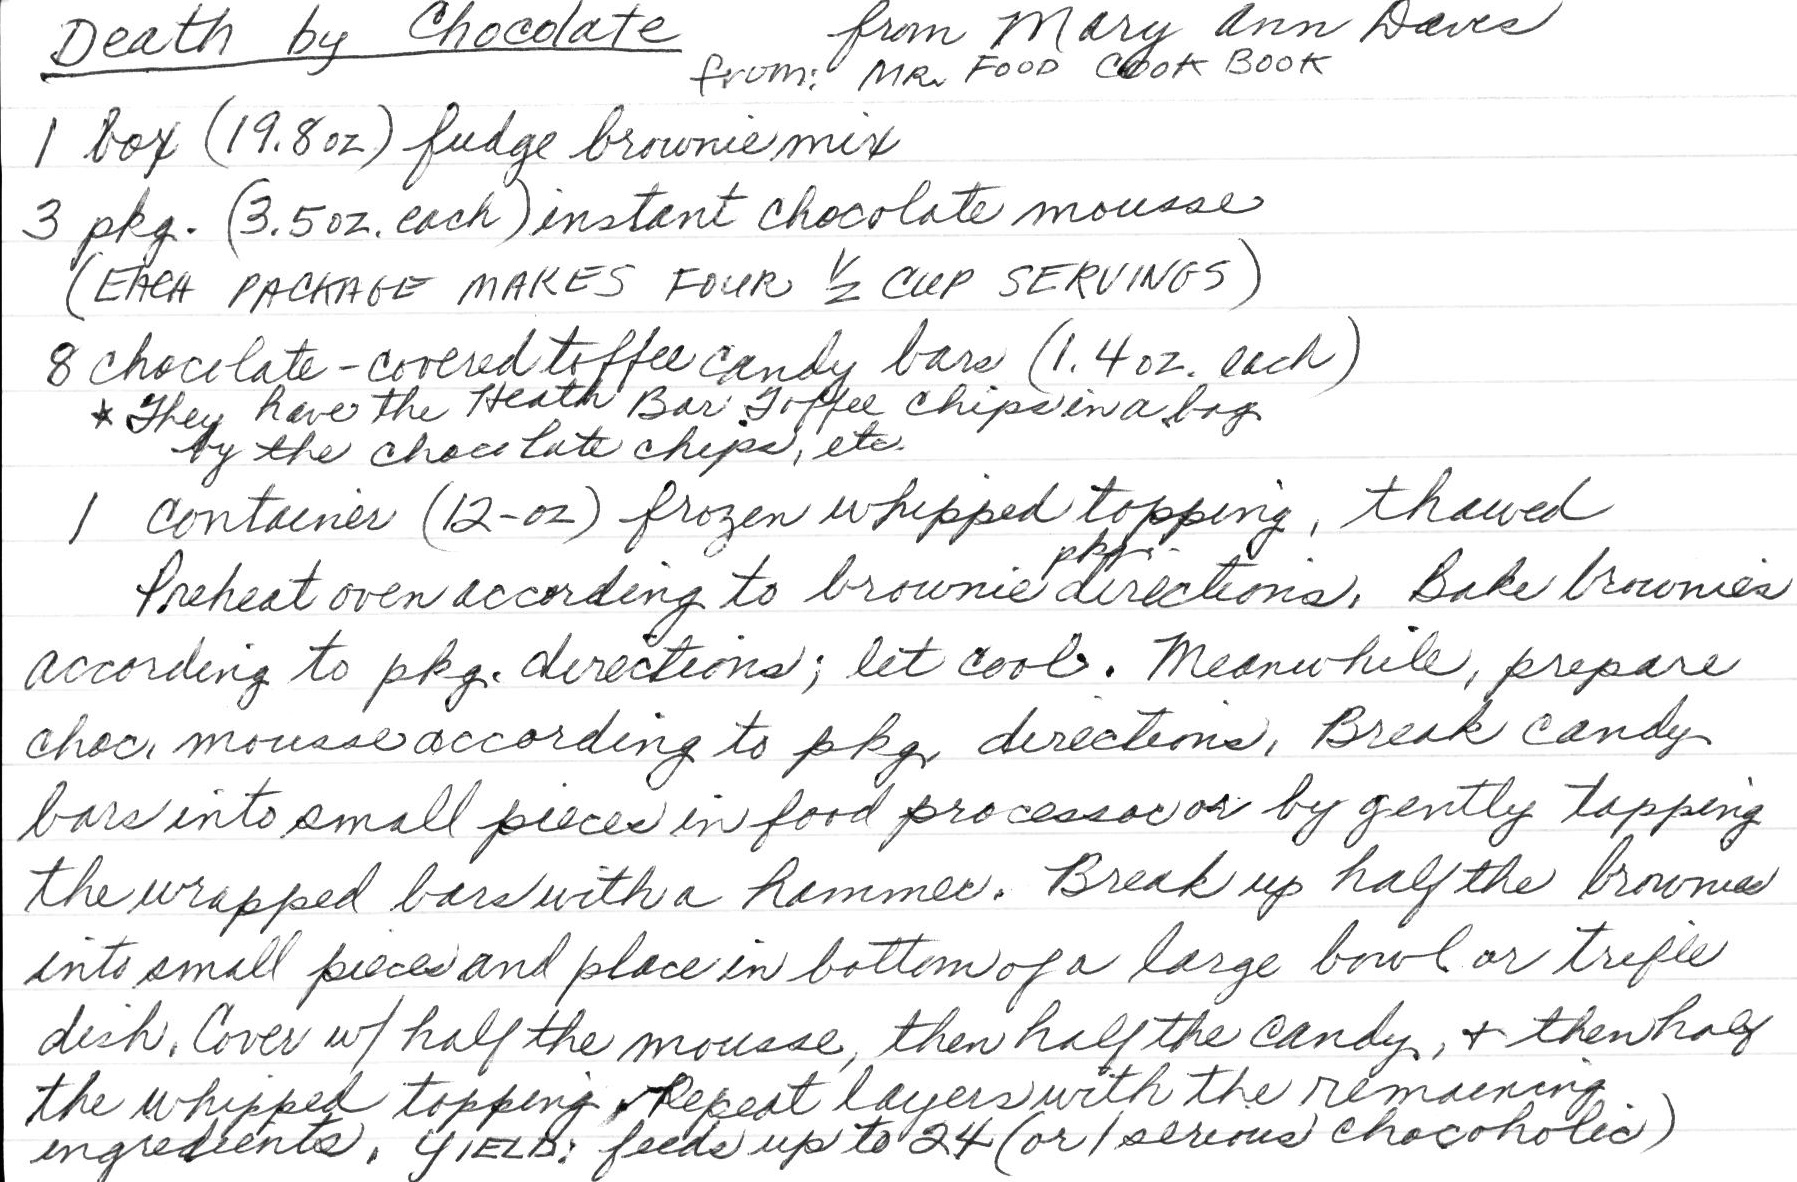 Death by Chocolate from Mary Ann Daves
from: MR. FOOD COOK BOOK
1 box (19.8 oz) fudge brownie mix
3 pkg. (3.5 oz. each) instant chocolate mousse
(EACH PACKAGE MAKES FOUR 1/2 CUP SERVINGS)
8 chocolate-covered toffee candy bars (1.4 oz. each)
* They have the Heath Bar Toffee chips in a bag
by the chocolate chips, etc.
1 container (12-oz) frozen whipped topping, thawed
Preheat oven according to brownie pkg. directions. Bake brownies
according to pkg. directions; let cool. Meanwhile, prepare
choc. mousse according to pkg. directions. Break candy
bars into small pieces in food processor or by gently tapping
the wrapped bars with a hammer. Break up half the brownies
into small pieces and place in bottom of a large bowl or trifle
dish. Cover w/ half the mousse, then half the candy, + then half
the whipped topping. Repeat layers with the remaining
ingredients. YIELD: feeds up to 24 (or 1 serious chocoholic)